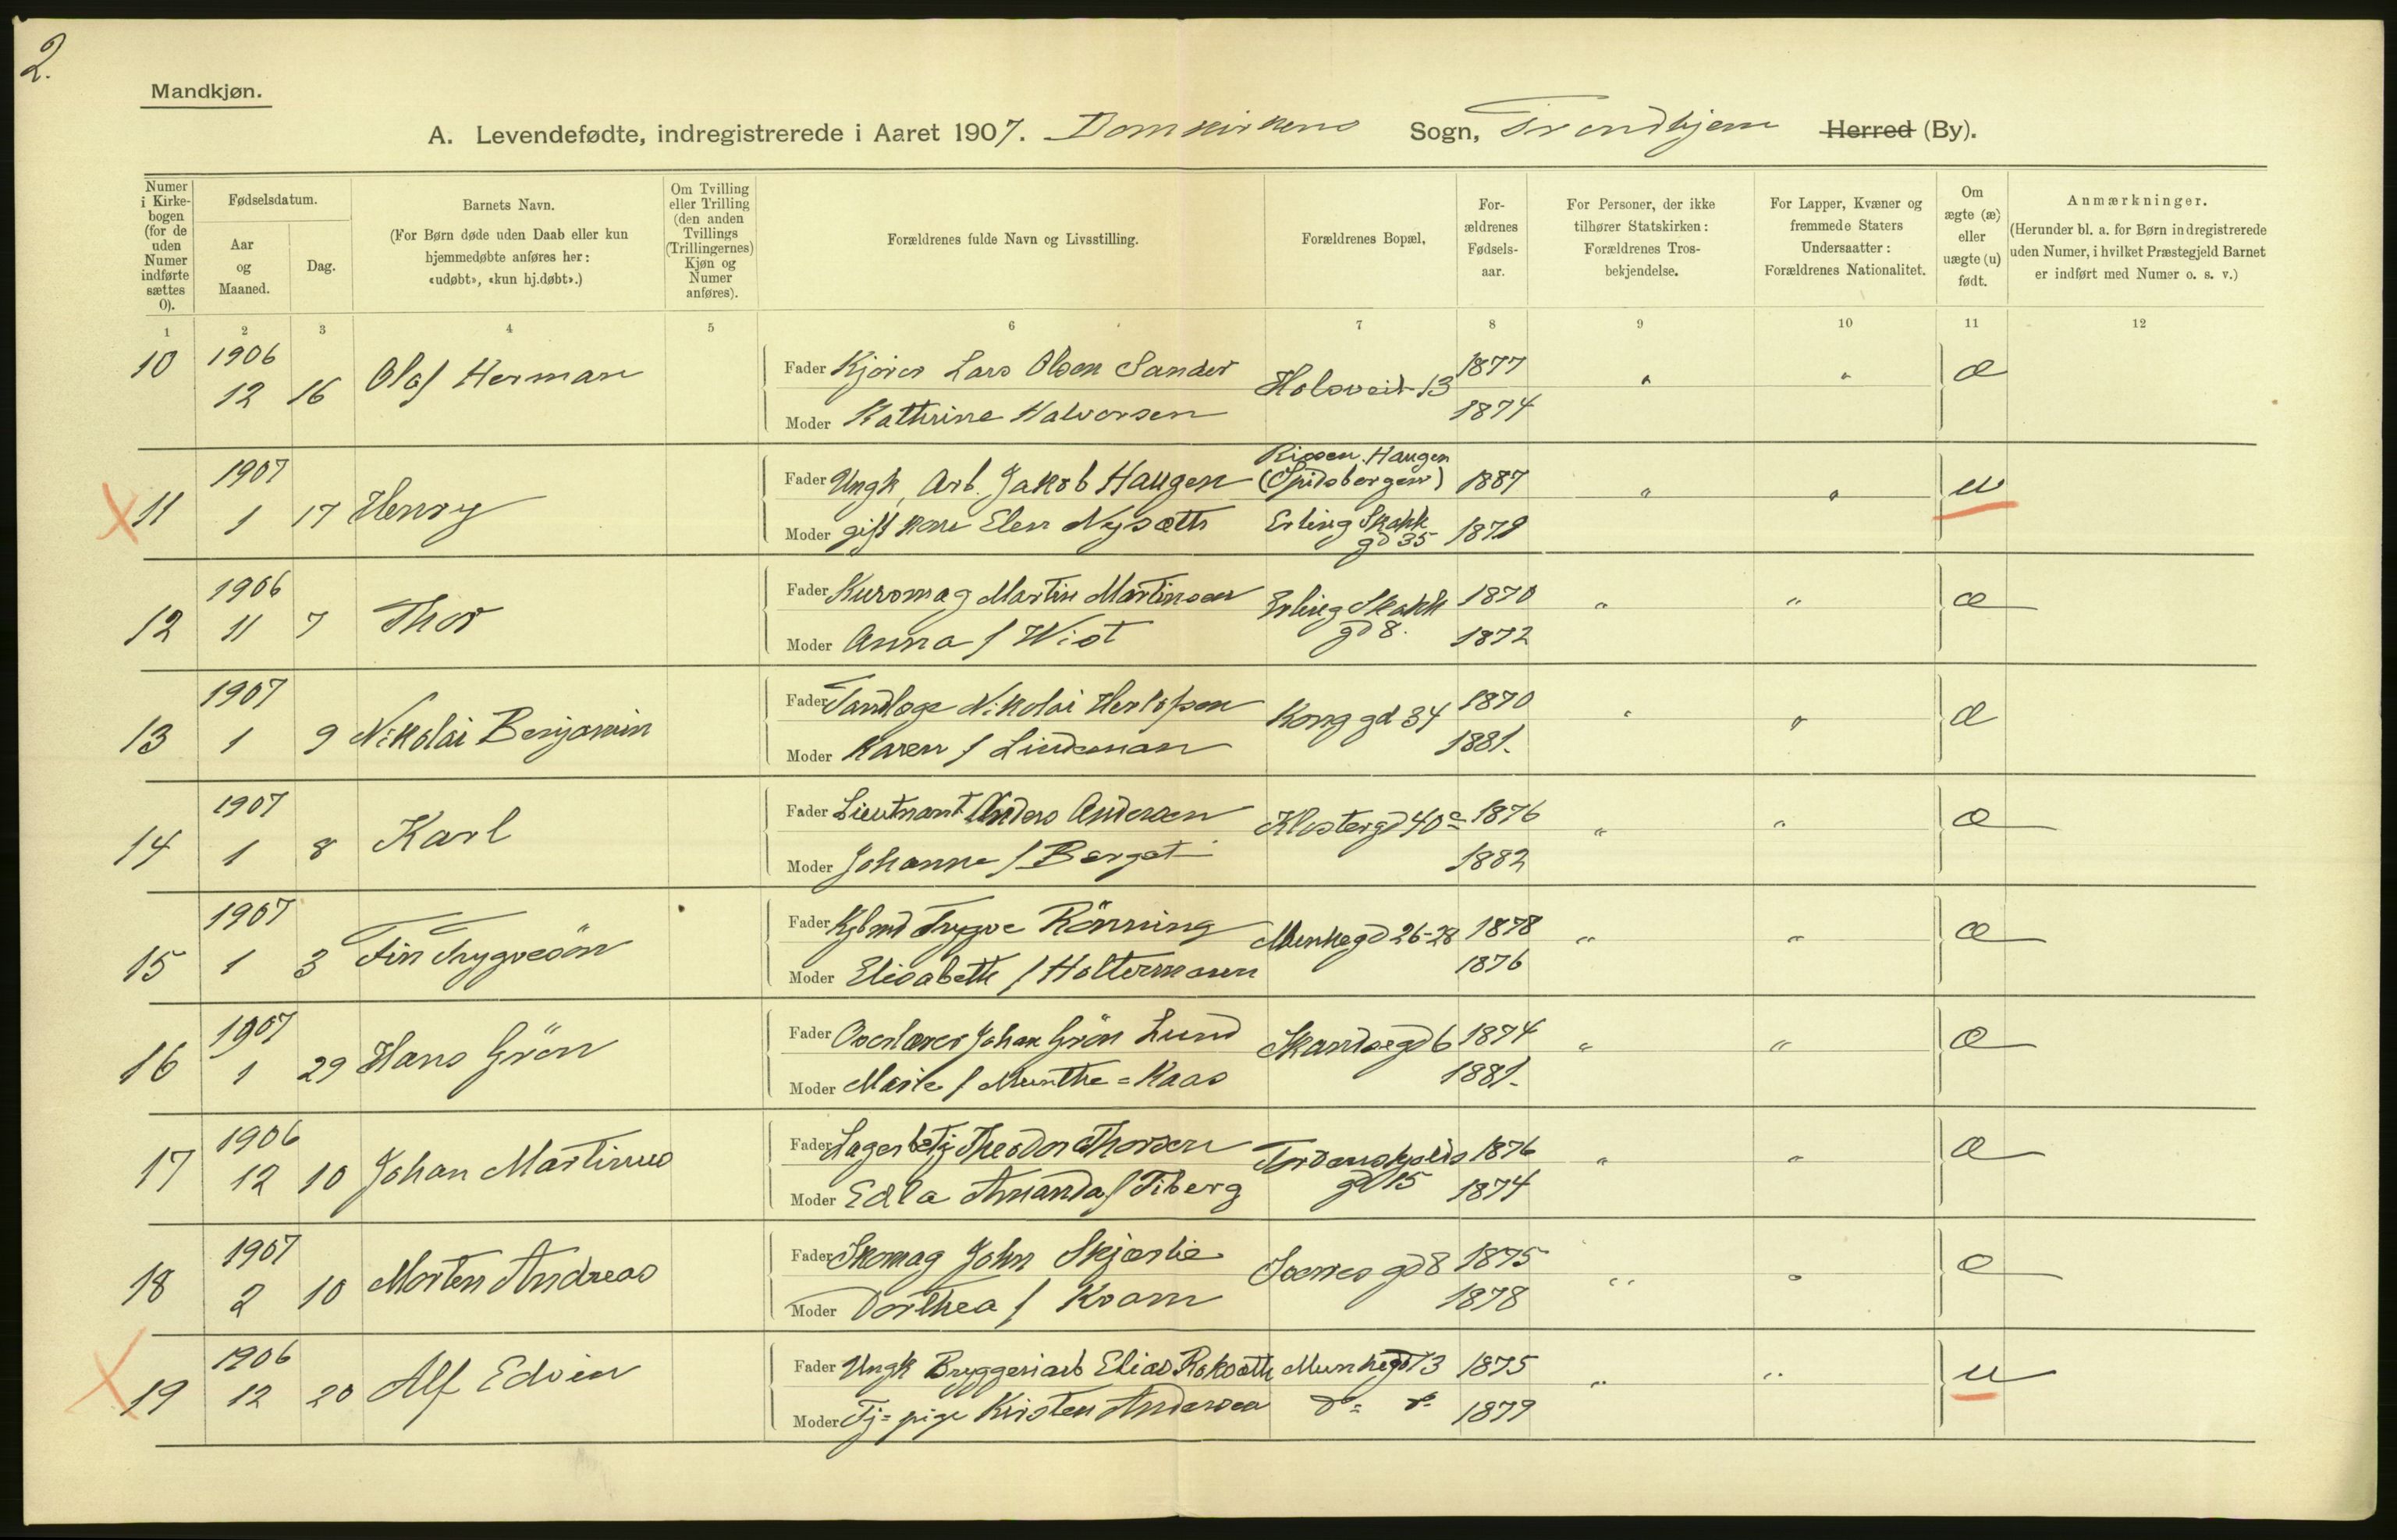 2.
Mandkjøn.
A. Levendefødte, indregistrerede i Aaret 1907. Domkirkens Sogn, Trondhjem Herred (By).
Numer i Kirke-bogen (for de uden Numer indførte sættes 0).
Fødselsdatum.
Aar og Maaned.
Dag.
Barnets Navn.
(For Børn døde uden Daab eller kun
hjemmedøbte anføres her:
«udøbt», «kun hj.døbt».)
Om Tvilling
eller Trilling
(den anden
Tvillings
(Trillingernes)
Kjøn og
Numer
anføres).
Forældrenes fulde Navn og Livsstilling.
Forældrenes Bopæl,
For-
ældrenes
Fødsels-
aar.
For Personer, der ikke
tilhører Statskirken:
Forældrenes Tros-
bekjendelse.
For Lapper, Kvæner og
fremmede Staters
Undersaatter:
Forældrenes Nationalitet.
Om
ægte (æ)
eller
uægte (u)
født.
Anmærkninger.
(Herunder bl. a. for Børn indregistrerede
uden Numer, i hvilket Præstegjeld Barnet
er indført med Numer o. s. v.)
1 2 3 4 5 6 7 8 9 10 11 12
10 1906 12 16 Olaf Herman
Fader Kjører Lars Olsen Sander Holsveit 13 1877 " " æ
Moder Kathrine Halvorsen 1874
X 11 1907 1 17 Henry
Fader Ungk, Arb. Jakob Haugen Rissen. Haugen (Spidsbergen) 1887 " " u
Moder gift kone Elen Nysæth Erling Skakk gd 35 1879
12 1906 11 7 Thor
Fader Kursmag Martin Martinsen Erling Skakk gd 8. 1870 " " æ
Moder Anna f Wist 1872
13 1907 1 9 Nikolai Benjamin
Fader Tandlæge Nikolai Herlofsen Kong gd 34 1870 " " æ
Moder Karen f Lindeman 1881.
14 1907 1 8 Karl
Fader Lieutnant Anders Andersen Klostergd 40 c 1876 " " æ
Moder Johanne f Berget 1882
15 1907 1 3 Fin Trygvesön
Fader Kjbmd Trygve Rönning Munkegd 26-28 1878 " " æ
Moder Elisabeth f Holtermann 1876
16 1907 1 29 Hans Grön
Fader Overlærer Johan Grön Lund Skandsegd 6 1874 " " æ
Moder Marie f Munthe=Kaas 1881.
17 1906 12 10 Johan Martinus
Fader Lagerbetj Theodor Thorsen Tordenskjolds gd 15 1876 " " æ
Moder Edla Amanda f Tiberg 1874
18 1907 2 10 Morten Andreas
Fader Skomag John Skjærlie Sverres gd 8 1875 " " æ
Moder Dorthea f Kvam 1878
X 19 1906 12 20 Alf Edvin
Fader Ungk Bryggeriarb Elias Roksæth Munkegd 13 1875 " " u
Moder Tj=pige Kirsten Andersen do do 1879